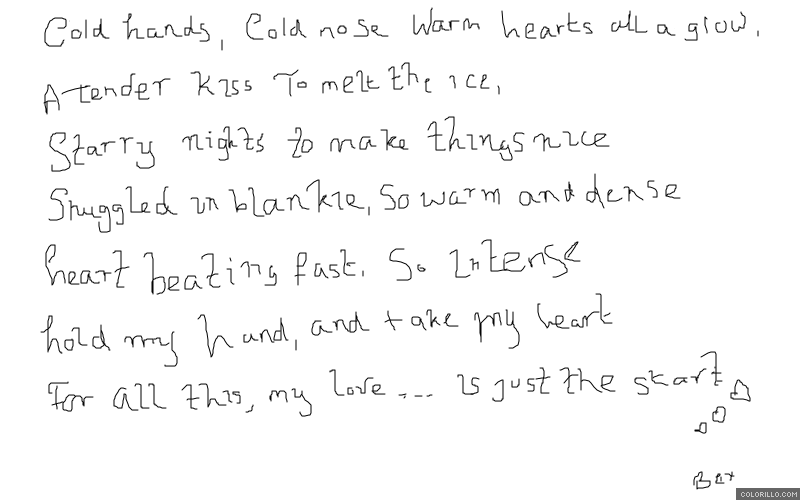 Cold hands, Cold nose Warm hearts all a glow.
A tender kiss To melt the ice,
Starry nights to make things nice
Snuggled in blankie, So warm and dense
heart beating fast. So Intense
hold my hand, and take my heart
For all this, my love .... is just the start
COLORILLO.COM